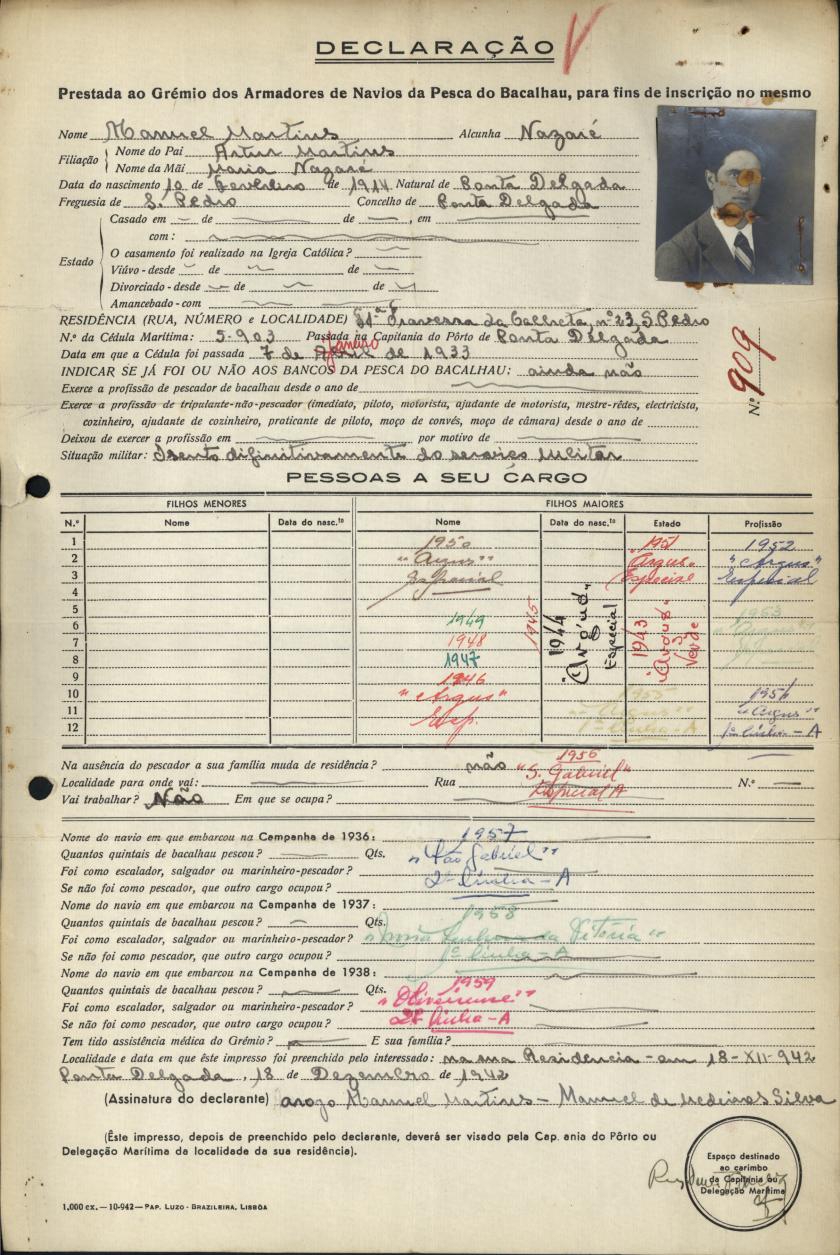 DECLARAÇÃO V
Prestada ao Grémio dos Armadores de Navios da Pesca do Bacalhau, para fins de inscrição no mesmo
Nome Manuel Martins Alcunha Nazaré
Filiação Nome do Pai Artur Martins
Nome da Mãi Maria Nazaré
Data do nascimento 10 de Fevereiro de 1914 Natural de Ponta Delgada
Freguesia de S. Pedro Concelho de Ponta Delgada
Casado em de de , em
com :
Estado O casamento foi realizado na Igreja Católica ?
Viúvo - desde de de
Divorciado - desde de de
Amancebado - com
RESIDÊNCIA (RUA, NÚMERO e LOCALIDADE) 1ª Travessa da Calheta, nº 23, S. Pedro
N.º da Cédula Marítima: 5-903 Passada na Capitania do Pôrto de Ponta Delgada
Data em que a Cédula foi passada 7 de Abril Janeiro de 1933
INDICAR SE JÁ FOI OU NÃO AOS BANCOS DA PESCA DO BACALHAU: ainda não
Exerce a profissão de pescador de bacalhau desde o ano de
Exerce a profissão de tripulante-não-pescador (imediato, piloto, motorista, ajudante de motorista, mestre-rêdes, electricista,
cozinheiro, ajudante de cozinheiro, praticante de piloto, moço de convés, moço de câmara) desde o ano de
Deixou de exercer a profissão em por motivo de
Situação militar: Isento difinitivamente do serviço militar
N.º 909
PESSOAS A SEU CARGO
FILHOS MENORES FILHOS MAIORES
N.º Nome Data do nasc.to Nome Data do nasc.to Estado Profissão
1 1950 1951 1952
2 "Argus" "Argus" "Argus"
3 Especial Especial Especial
4
5 1945 1944 "Argus" Especial 1943 "Argus" Verde 1953
6 1949
7 1948
8 1947
9 1946
10 "Argus" 1955 1954
11 Esp. "Argus" "Argus"
12 1ª Linha - A 1ª Linha - A
Na ausência do pescador a sua família muda de residência ? não 1956
Localidade para onde vai: Rua "S. Gabriel" N.º
Vai trabalhar ? Não Em que se ocupa ? Especial A
Nome do navio em que embarcou na Campanha de 1936: 1957
Quantos quintais de bacalhau pescou ? Qts. "São Gabriel"
Foi como escalador, salgador ou marinheiro-pescador ?
Se não foi como pescador, que outro cargo ocupou ? 2ª Linha - A
Nome do navio em que embarcou na Campanha de 1937: 1958
Quantos quintais de bacalhau pescou ? Qts.
Foi como escalador, salgador ou marinheiro-pescador ? "Nossa Senhora da Vitória"
Se não foi como pescador, que outro cargo ocupou ? 1ª Linha - A
Nome do navio em que embarcou na Campanha de 1938:
Quantos quintais de bacalhau pescou ? Qts. 1959
Foi como escalador, salgador ou marinheiro-pescador ? "Oliveirense"
Se não foi como pescador, que outro cargo ocupou ? 2ª Linha - A
Tem tido assistência médica do Grémio ? E sua família ?
Localidade e data em que êste impresso foi preenchido pelo interessado: na sua Residência - em 18-XII-942
Ponta Delgada , 18 de Dezembro de 1942
(Assinatura do declarante) arogo Manuel Martins - Manuel de Medeiros Silva
(Êste impresso, depois de preenchido pelo declarante, deverá ser visado pela Cap. ania do Pôrto ou
Delegação Marítima da localidade da sua residência).
Espaço destinado
ao carimbo
da Capitania ou
Delegação Marítima
1,000 ex. — 10-942 — PAP. LUZO - BRAZILEIRA, LISBÔA